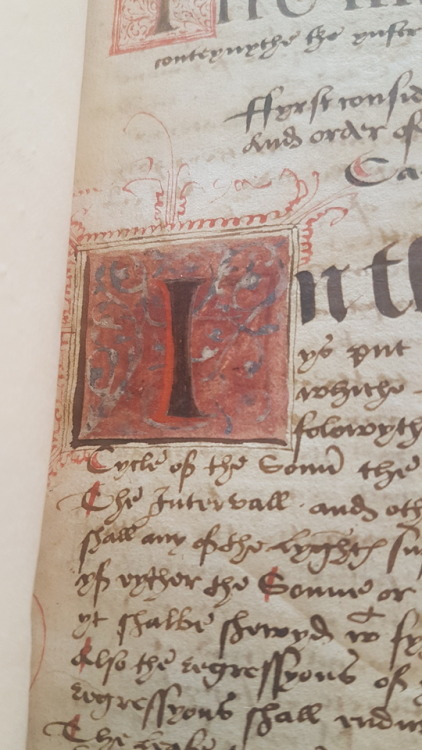 conteynythe the ynstr
ffyrst consid
and order of
Ca
Inth
ys put
whithe
folowyth
Cycle of the Sonn̄ the
The Intervall · and oth
shall any of the lyghtes su
yf eyther the Sonne or
yt shalbe shewyd wt sy
Also the regressyons of
regressyons shall endu
The